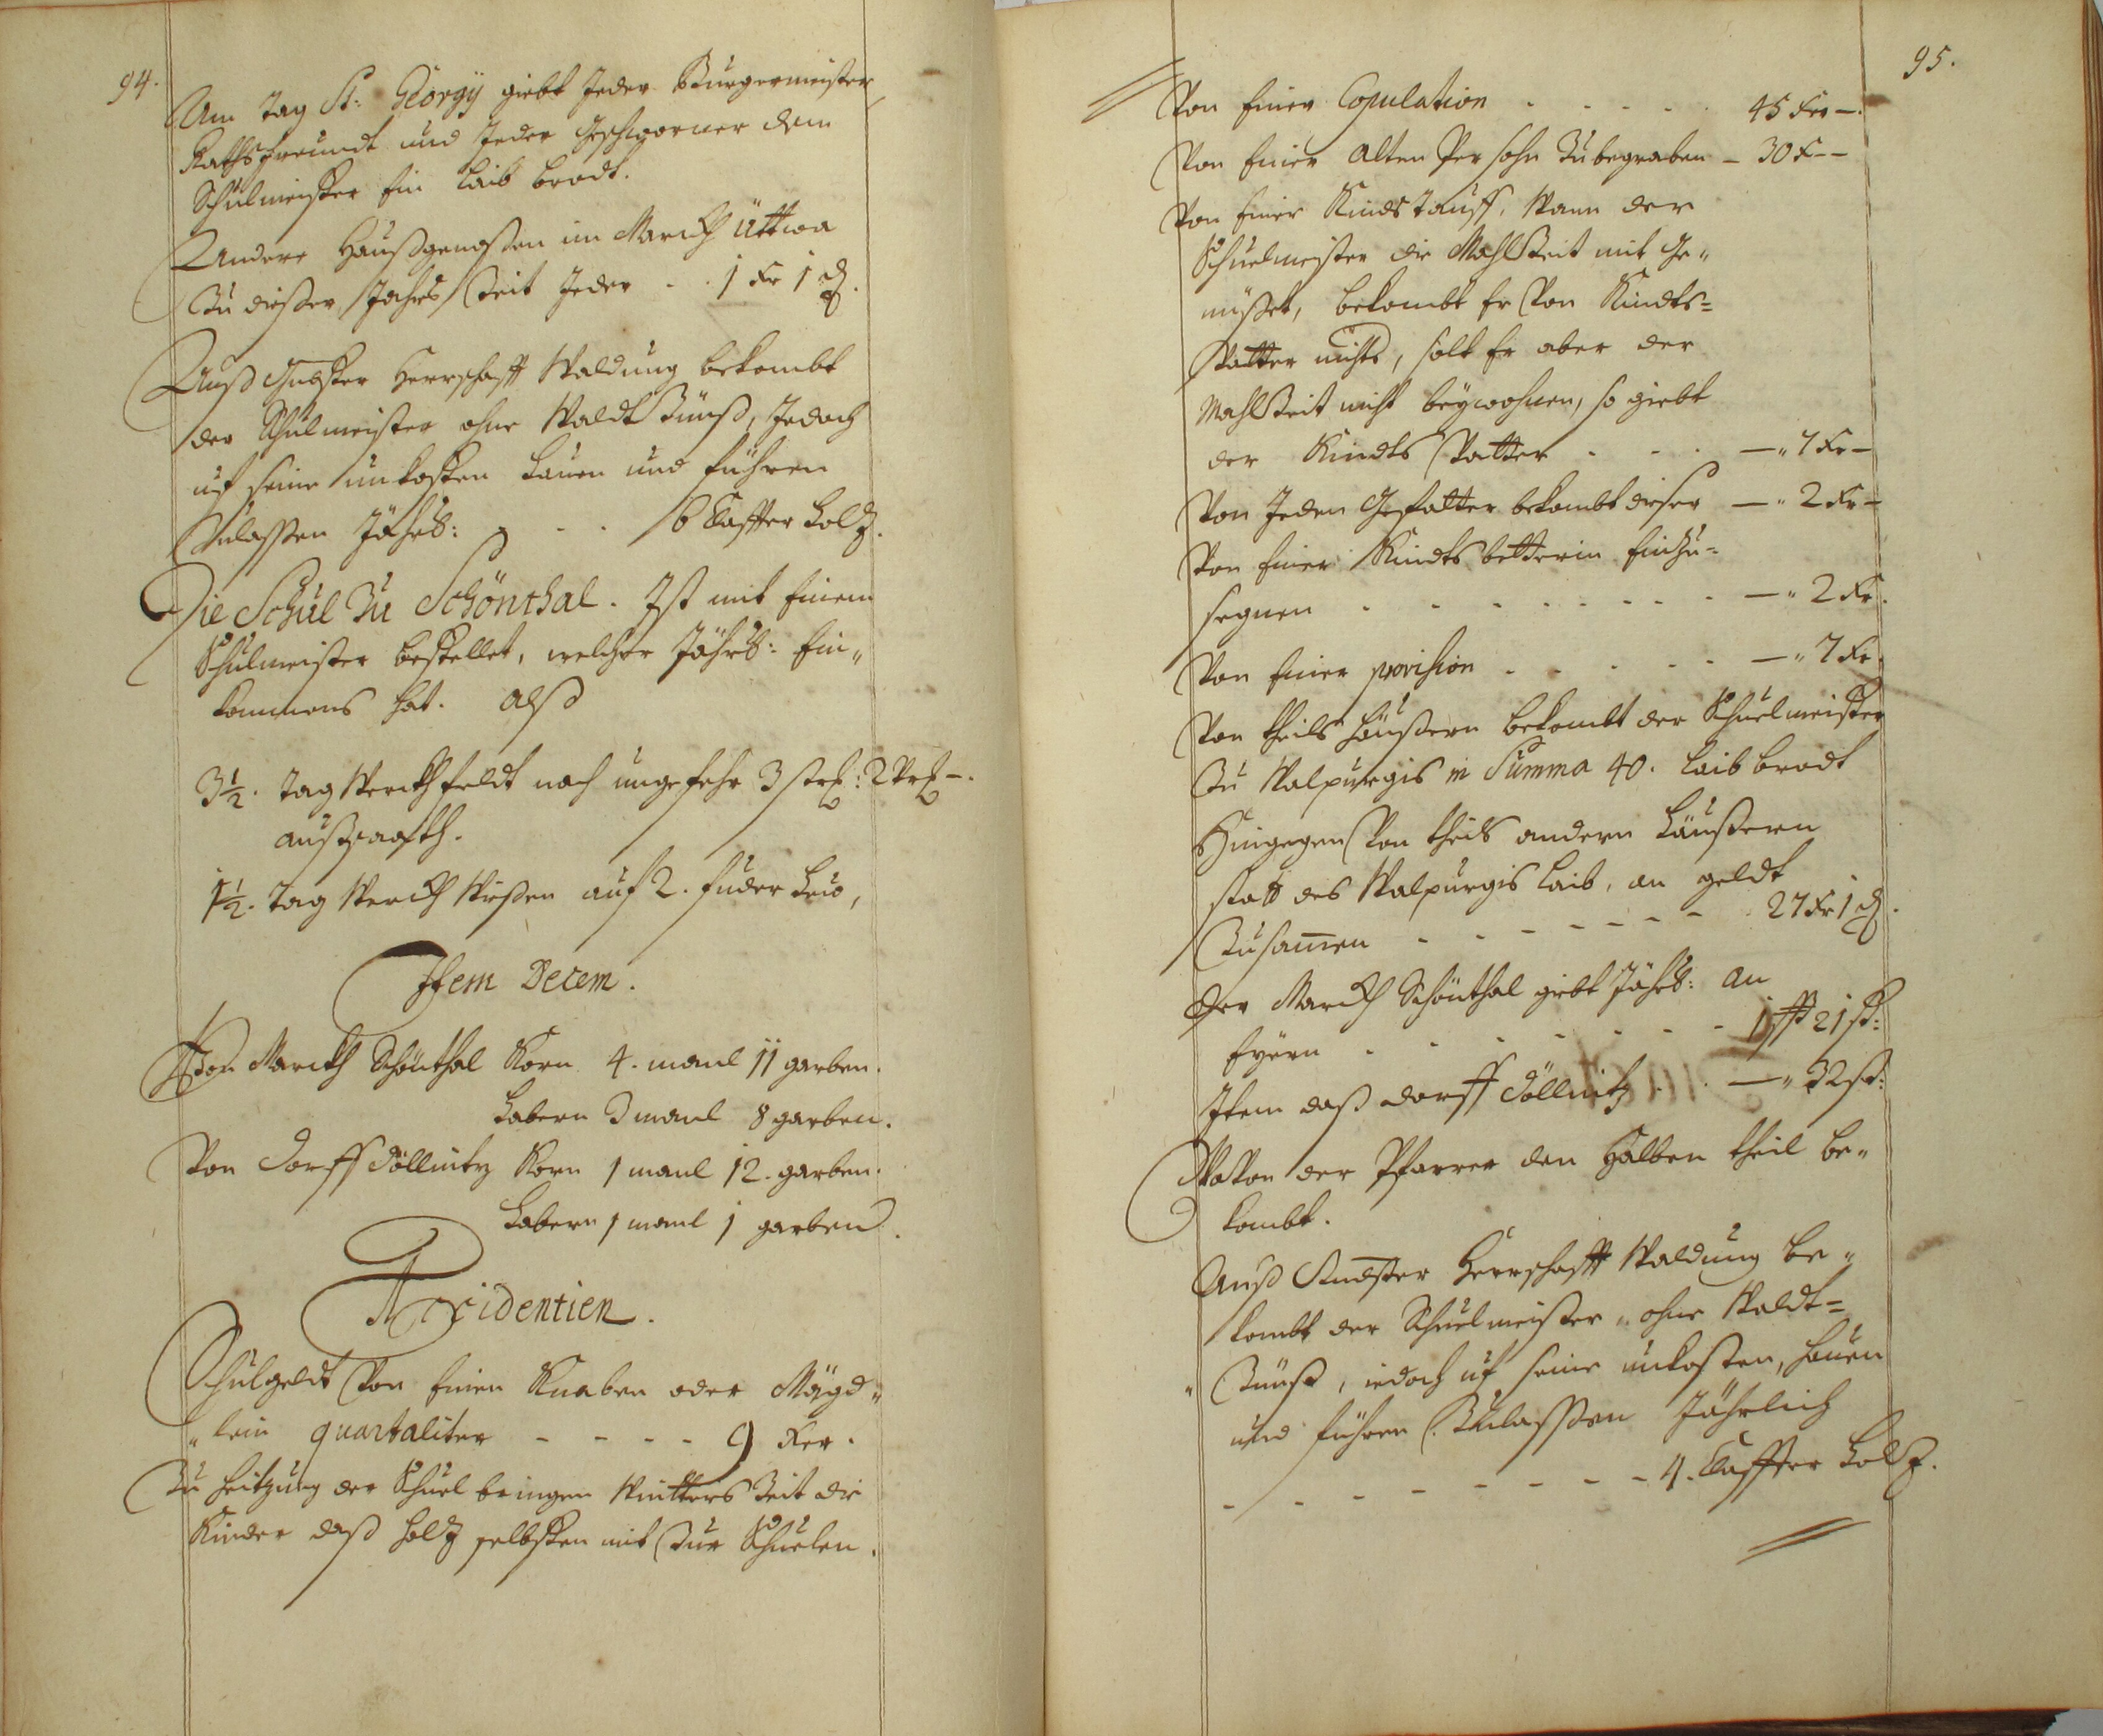 94.
Am Tag St: Georgÿ giebt Jeder Burgermeister
Rathsfreundt und Jeder Geschworner dem
Schulmeister Ein Laib brodt.
Andere Haußgenoßen im Marckh Uttwa
Zu dießer Jahrs Zeit Jeder - . 1 Kr 1 ₰.
Auß Gndster Herrschafft Waldung bekombt
der Schulmeister ohne Waldt Zünß, Jedoch
uf seine unkosten hauen und führen
Zulassen Jährl: - - . 6 Claffter holtz.
Die Schul Zu Schönthal. Ist mit Einem
Schulmeister bestellet, welcher Jährl: Ein„
kommens hat. Alß
3½. Tag Werckh feldt nach ungefehr 3 strl: 2 Vrl -.
außsaath.
1½. Tag Werckh Wißen auf 2. fuder heü,
Item Decem.
Von Marckh Schönthal Korn 4. manl 11 garben.
habern 3 manl 8 garben.
Von Dorff Döllnitz Korn 1 manl 12. garben.
habern 1 manl 1 garben.
Accidentien.
Schulgeldt Von Einen Knaben oder Mägd„
„lein quartaliter - - - - 9 Kr.
Zu heitzung der Schuel bringen Wintters Zeit die
Kinder daß holtz selbsten mit Zur Schuelen.
95.
Von Einer Copulation - - - - - 45 Kr -.
Von Einer Alten Persohn Zu begraben - 30 K - -
Von Einer Kinds Tauff, Wann der
Schuelmeister die Mahlzeit mit Ge„
nüßet, bekombt Er Von Kindts=
Vatter nichts, solt Er aber der
Mahlzeit nicht beÿwohnen, so giebt
der Kindts Vatter - - . —„ 7 Kr -
Von Jeden Gefatter bekombt dieser —„ 2 Kr -
Von Einer Kindtsbetterin Einzu=
segnen - - - - - - - —„ 2 Kr.
Von Einer provision - - - - - —„ 7 Kr.
Von theils Häußern bekombt der Schuelmeister
Zu Walpurgis in Summa 40. Laib brodt
Hingegen Von theils andern Häußern
statt des Walpurgis Laib, an geldt
Zusam̅en - - - - - - - 27 Kr 1 ₰.
Der Marckh Schönthal giebt Jährl: An
Eÿern - - - - - - - 1 ßß 21 st:
Item daß Dorff Döllnitz - . —„ 32 st:
Wovon der Pfarrer den Halben theil be„
kombt.
Auß Gnedster Herrschafft Waldung be„
kombt der Schuelmeister„ ohne Waldt=
„ Zünß, iedoch uf seine unkosten, hauen
und führen Zulassen Jährlich
- - - - - - - - 4. Claffter holtz.